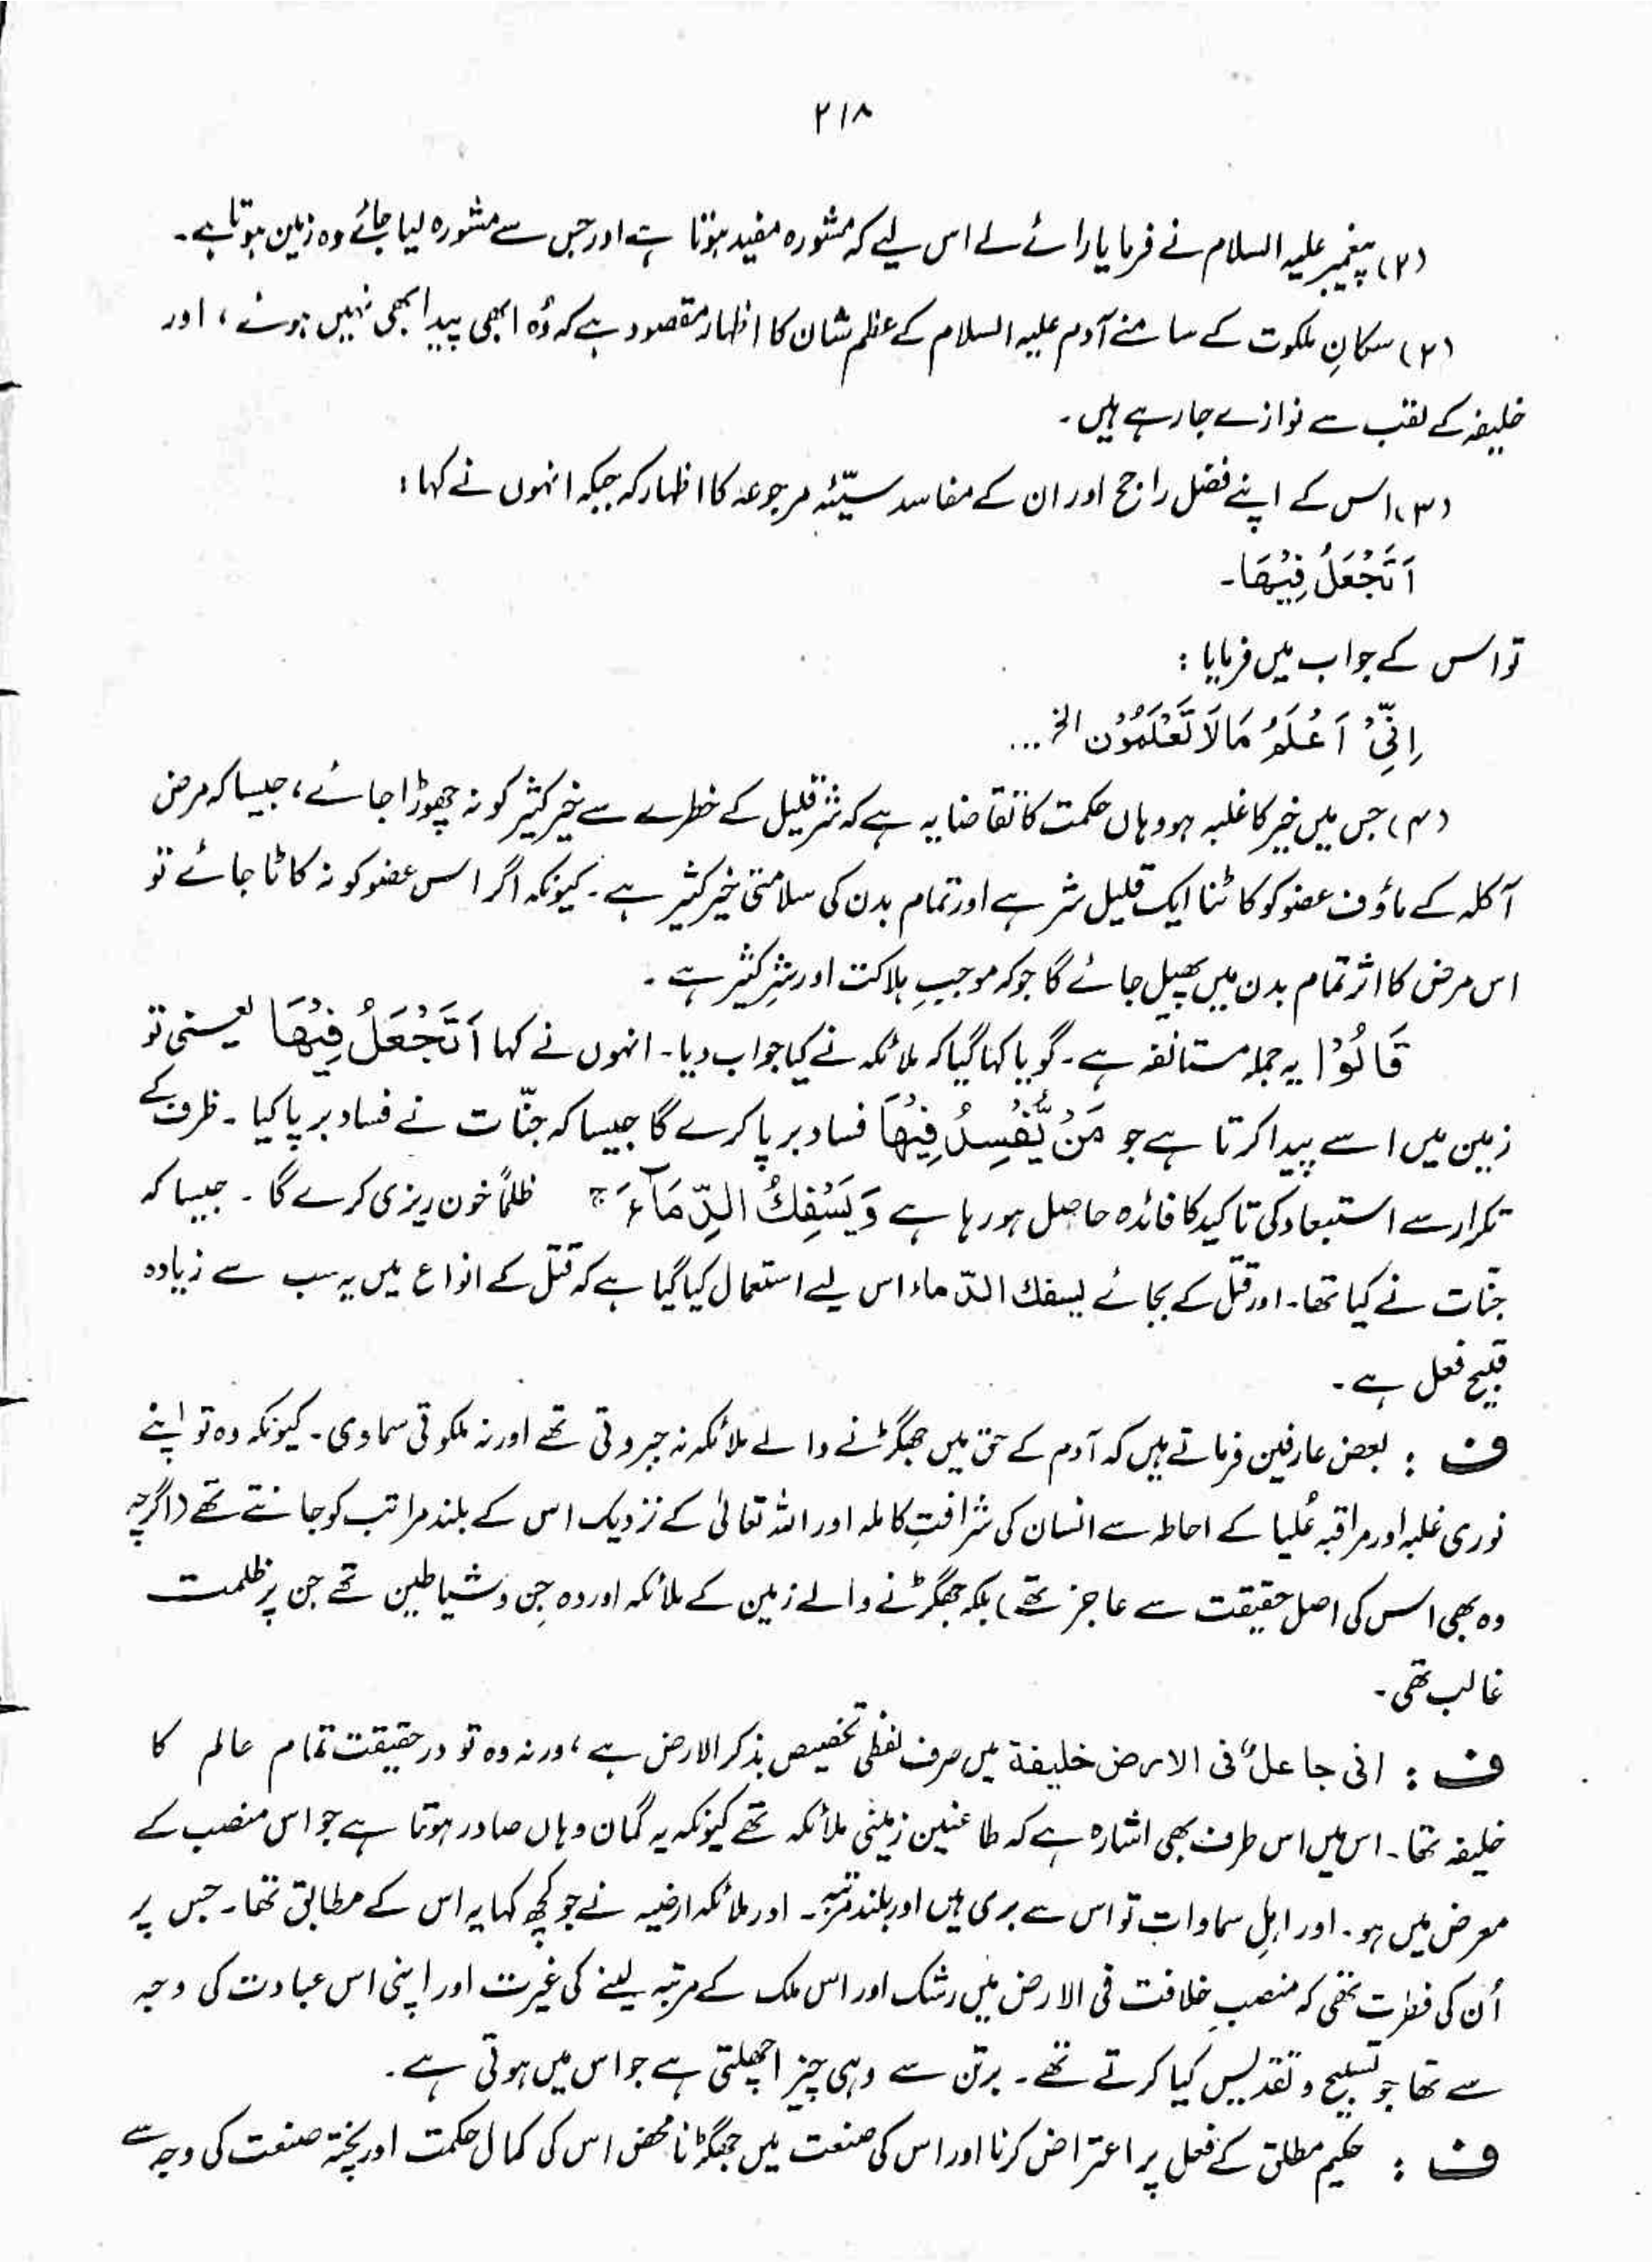 ۲۱۸
(۲) پیغمبر علیہ السلام نے فرمایا رائے لے اس لیے کہ مشورہ مفید ہوتا ہے اور جس سے مشورہ لیا جائے وہ زہین ہوتا ہے۔
(۲) سکانِ ملکوت کے سامنے آدم علیہ السلام کے عظم شان کا اظہار مقصود ہے کہ وُہ ابھی پیدا بھی نہیں ہوئے ، اور
خلیفہ کے لقب سے نوازے جا رہے ہیں۔
(۳) اس کے اپنے فضل راجح اور ان کے مفاسد سیّئہ مرجوعہ کا اظہار کہ جبکہ انہوں نے کہا :
اَتَجْعَلُ فِیْھَا۔
تو اس کے جواب میں فرمایا :
اِنِّیْ اَعْلَمُ مَا لَا تَعْلَمُوْن الخ ...
(۴) جس میں خیر کا غلبہ ہو وہاں حکمت کا تقاضا یہ ہے کہ شرِ قلیل کے خطرے سے خیر کثیر کو نہ چھوڑا جائے ، جیسا کہ مرض
آکلہ کے ماؤف عضو کو کاٹنا ایک قلیل شر ہے اور تمام بدن کی سلامتی خیر کثیر ہے۔ کیونکہ اگر اس عضو کو نہ کاٹا جائے تو
اس مرض کا اثر تمام بدن میں پھیل جائے گا جو کہ موجبِ ہلاکت اور شرِ کثیر ہے ۔
قَالُوْا یہ جملہ مستانفہ ہے۔ گویا کہا گیا کہ ملائکہ نے کیا جواب دیا۔ انہوں نے کہا اَتَجْعَلُ فِیْھَا یعنی تو
زمین میں اسے پیدا کرتا ہے جو مَنْ یُّفْسِدُ فِیْھَا فساد برپا کرے گا جیسا کہ جنّات نے فساد برپا کیا ۔ ظرف کے
تکرار سے استبعاد کی تاکید کا فائدہ حاصل ہو رہا ہے وَیَسْفِكُ الدِّمَآءَ ج ظلماً خون ریزی کرے گا ۔ جیسا کہ
جنّات نے کیا تھا۔ اور قتل کے بجائے یسفك الدّماء اس لیے استعمال کیا گیا ہے کہ قتل کے انواع میں یہ سب سے زیادہ
قبیح فعل ہے ۔
ف : بعض عارفین فرماتے ہیں کہ آدم کے حق میں جھگڑنے والے ملائکہ نہ جبروتی تھے اور نہ ملکوتی سماوی۔ کیونکہ وہ تو اپنے
نوری غلبہ اور مراقبہ عُلیا کے احاطہ سے انسان کی شرافتِ کاملہ اور اللہ تعالٰی کے نزدیک اس کے بلند مراتب کو جانتے تھے (اگرچہ
وہ بھی اس کی اصل حقیقت سے عاجز تھے) بلکہ جھگڑنے والے زمین کے ملائکہ اور وہ جِن و شیاطین تھے جن پر ظلمت
غالب تھی ۔
ف : انی جاعلٌ فی الارض خلیفة میں صرف لفظی تخصیص بذکر الارض ہے ، ورنہ وہ تو در حقیقت تمام عالم کا
خلیفہ تھا۔ اس میں اس طرف بھی اشارہ ہے کہ طاعنین زمینی ملائکہ تھے کیونکہ یہ گمان وہاں صادر ہوتا ہے جو اس منصب کے
معرض میں ہو۔ اور اہلِ سماوات تو اس سے بری ہیں اور بلند مرتبہ۔ اور ملائکہ ارضیہ نے جو کچھ کہا یہ اس کے مطابق تھا۔ جس پر
اُن کی فطرت تھی کہ منصبِ خلافت فی الارض میں رشک اور اس ملک کے مرتبہ لینے کی غیرت اور اپنی اس عبادت کی وجہ
سے تھا جو تسبیح و تقدیس کیا کرتے تھے ۔ برتن سے وہی چیز اچھلتی ہے جو اس میں ہوتی ہے ۔
ف : حکیم مطلق کے فعل پر اعتراض کرنا اور اس کی صنعت میں جھگڑنا محض اس کی کمال حکمت اور پختہ صنعت کی وجہ سے